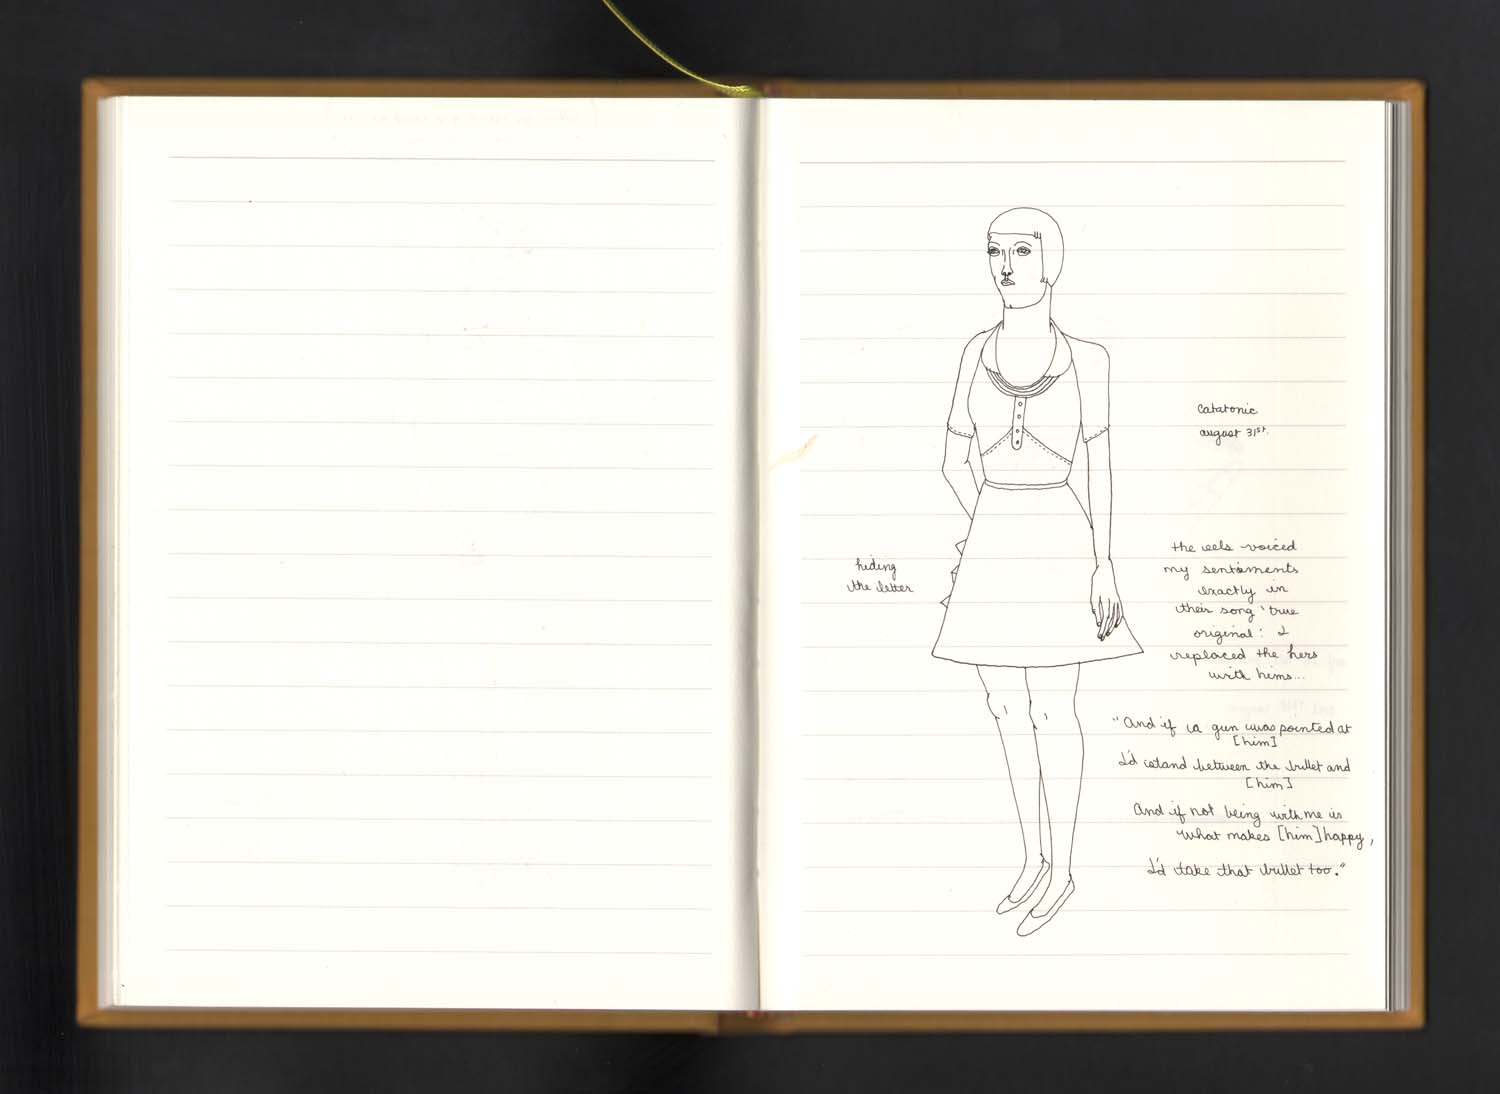 catatonic
august 31st.
hiding
the letter
the eels voiced
my sentiments
exactly in
their song 'true
original'. I
replaced the hers
with hims...
"And if a gun was pointed at
[him]
I'd stand between the bullet and
[him]
And if not being with me is
what makes [him] happy,
I'd take that bullet too."